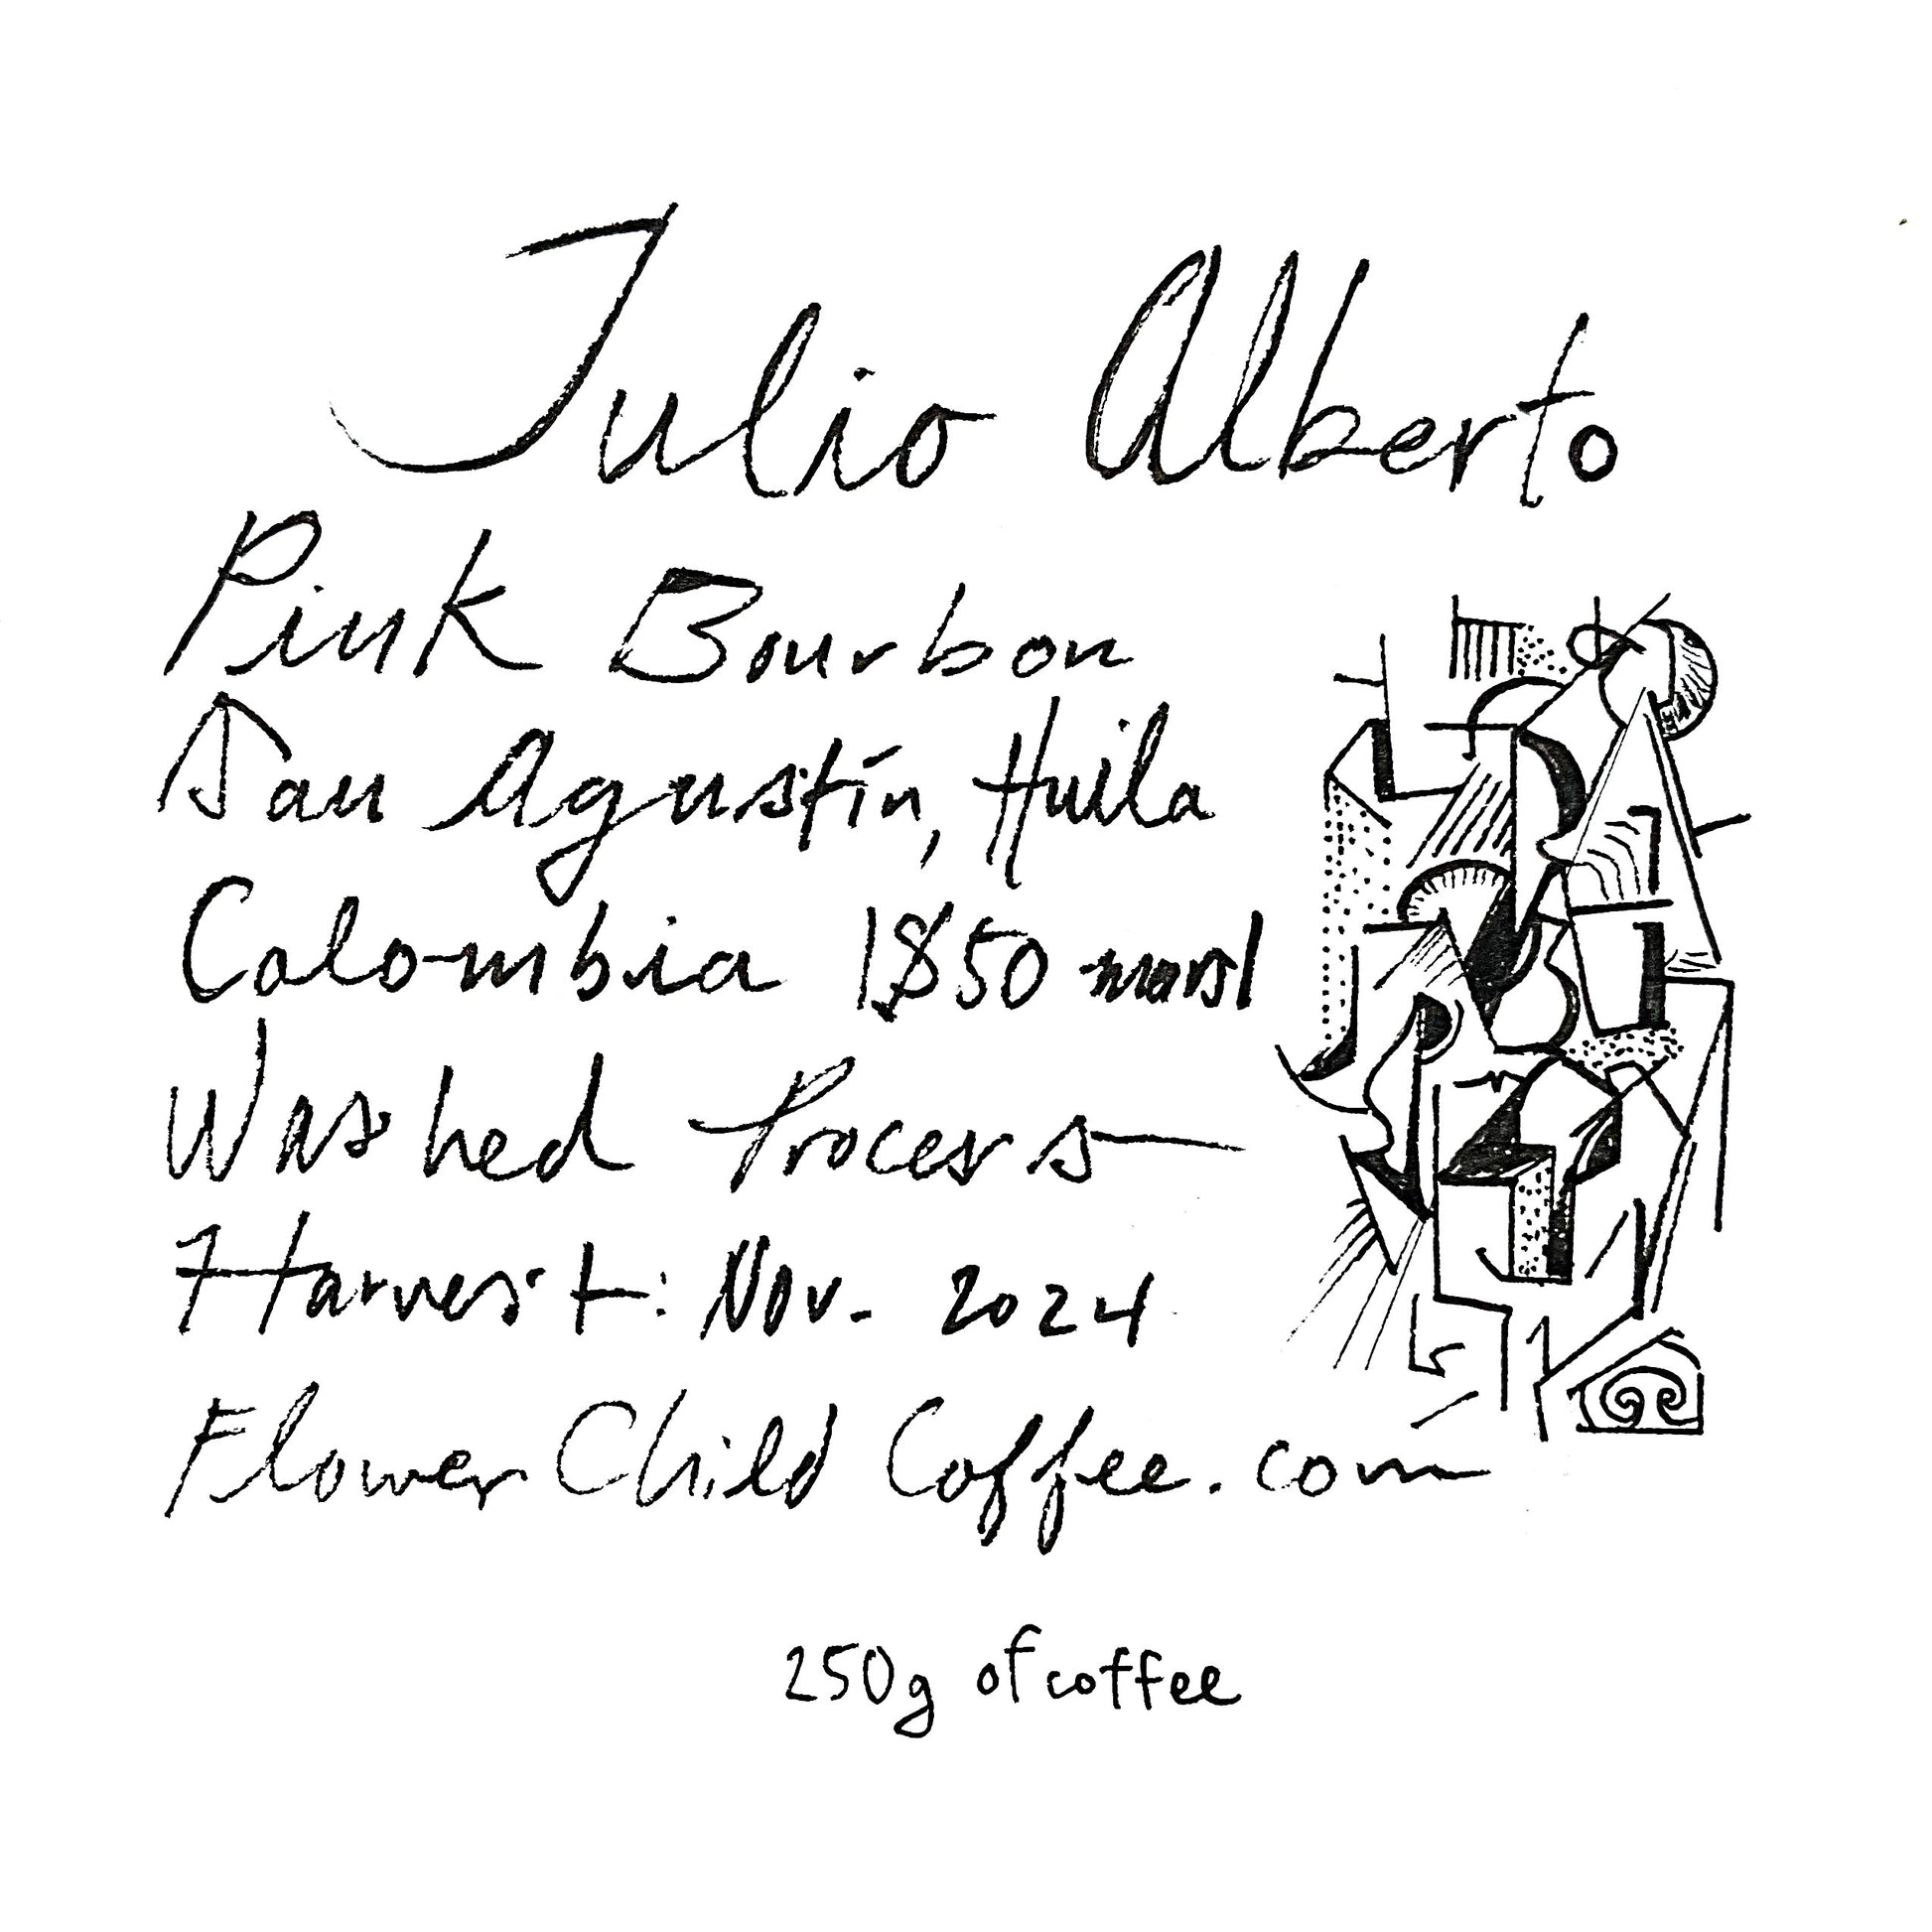 Julio Alberto
Pink Bourbon
San Agustín, Huila
Colombia 1850 masl
Washed Process
Harvest: Nov. 2024
Flower Child Coffee.com
250g of coffee